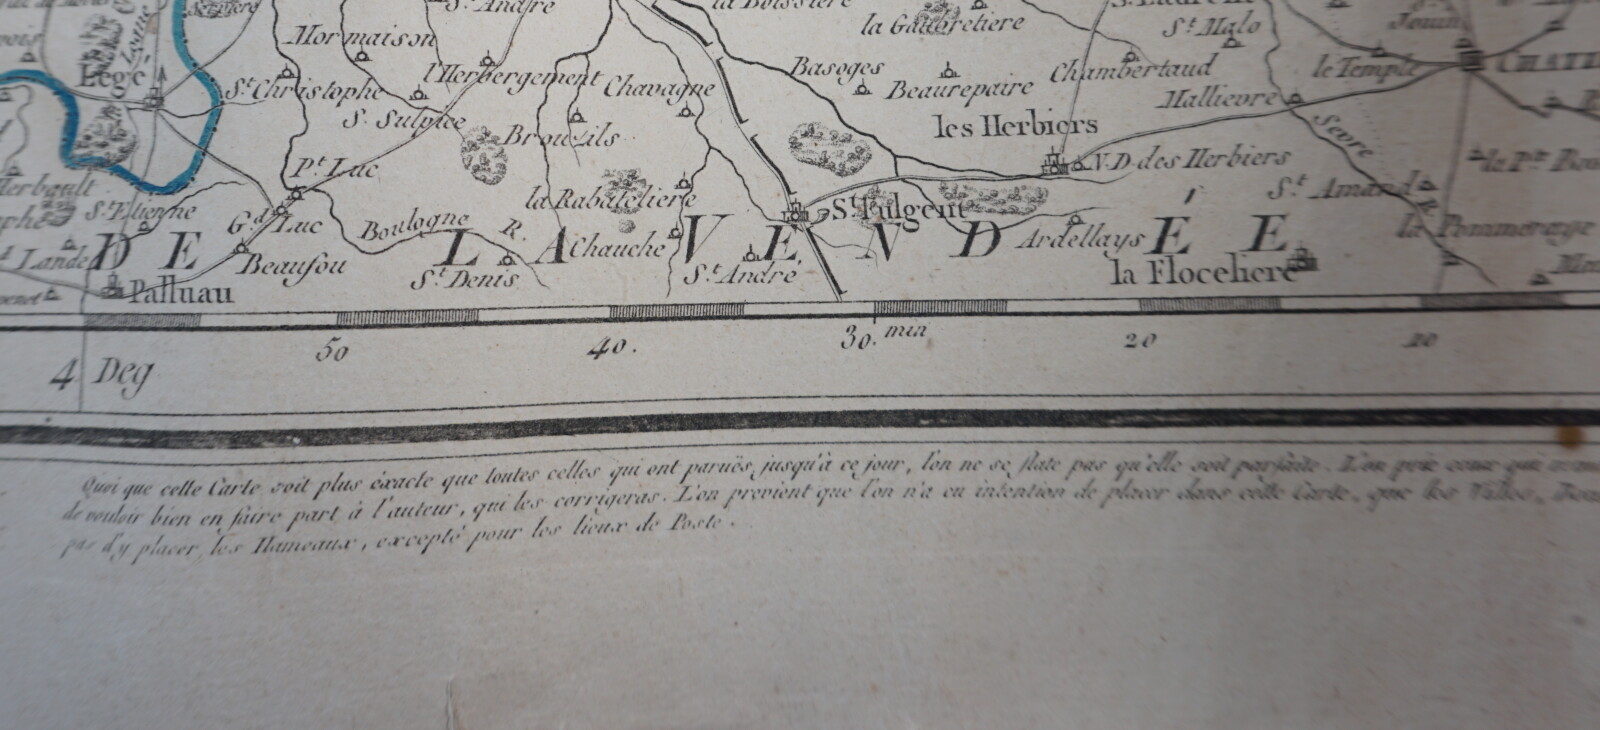 St. André
la Boissiere
la Gaubretiere
St. Malo
Mormaison
l'Herbergement
Chavagne
Basoges
Beaurepaire
Chambertaud
le Temple
Légé
St. Christophe
S. Sulpice
Mallievre
les Herbiers
Sevre
Pt. Luc
N.D. des Herbiers
la Rabateliere
St. Amand
St. Etienne
Gd. Luc
Boulogne R.
St. Fulgent
Ardellays
la Pommeraye
DE LA VENDÉE
Chauche
Beaufou
St. Denis
St. André
la Floceliere
Palluau
50
40.
30. min
20
4 Deg
Quoi que celle Carte soit plus éxacte que toutes celles qui ont paruës, jusqu'à ce jour, l'on ne se flate pas qu'elle soit parfaite. L'on prie ceux qui
de vouloir bien en faire part à l'auteur, qui les corrigeras. L'on previent que l'on n'a eu intention de placer dans cette Carte, que les Villes,
pas d'y placer, les Hameaux, excepté pour les lieux de Poste.